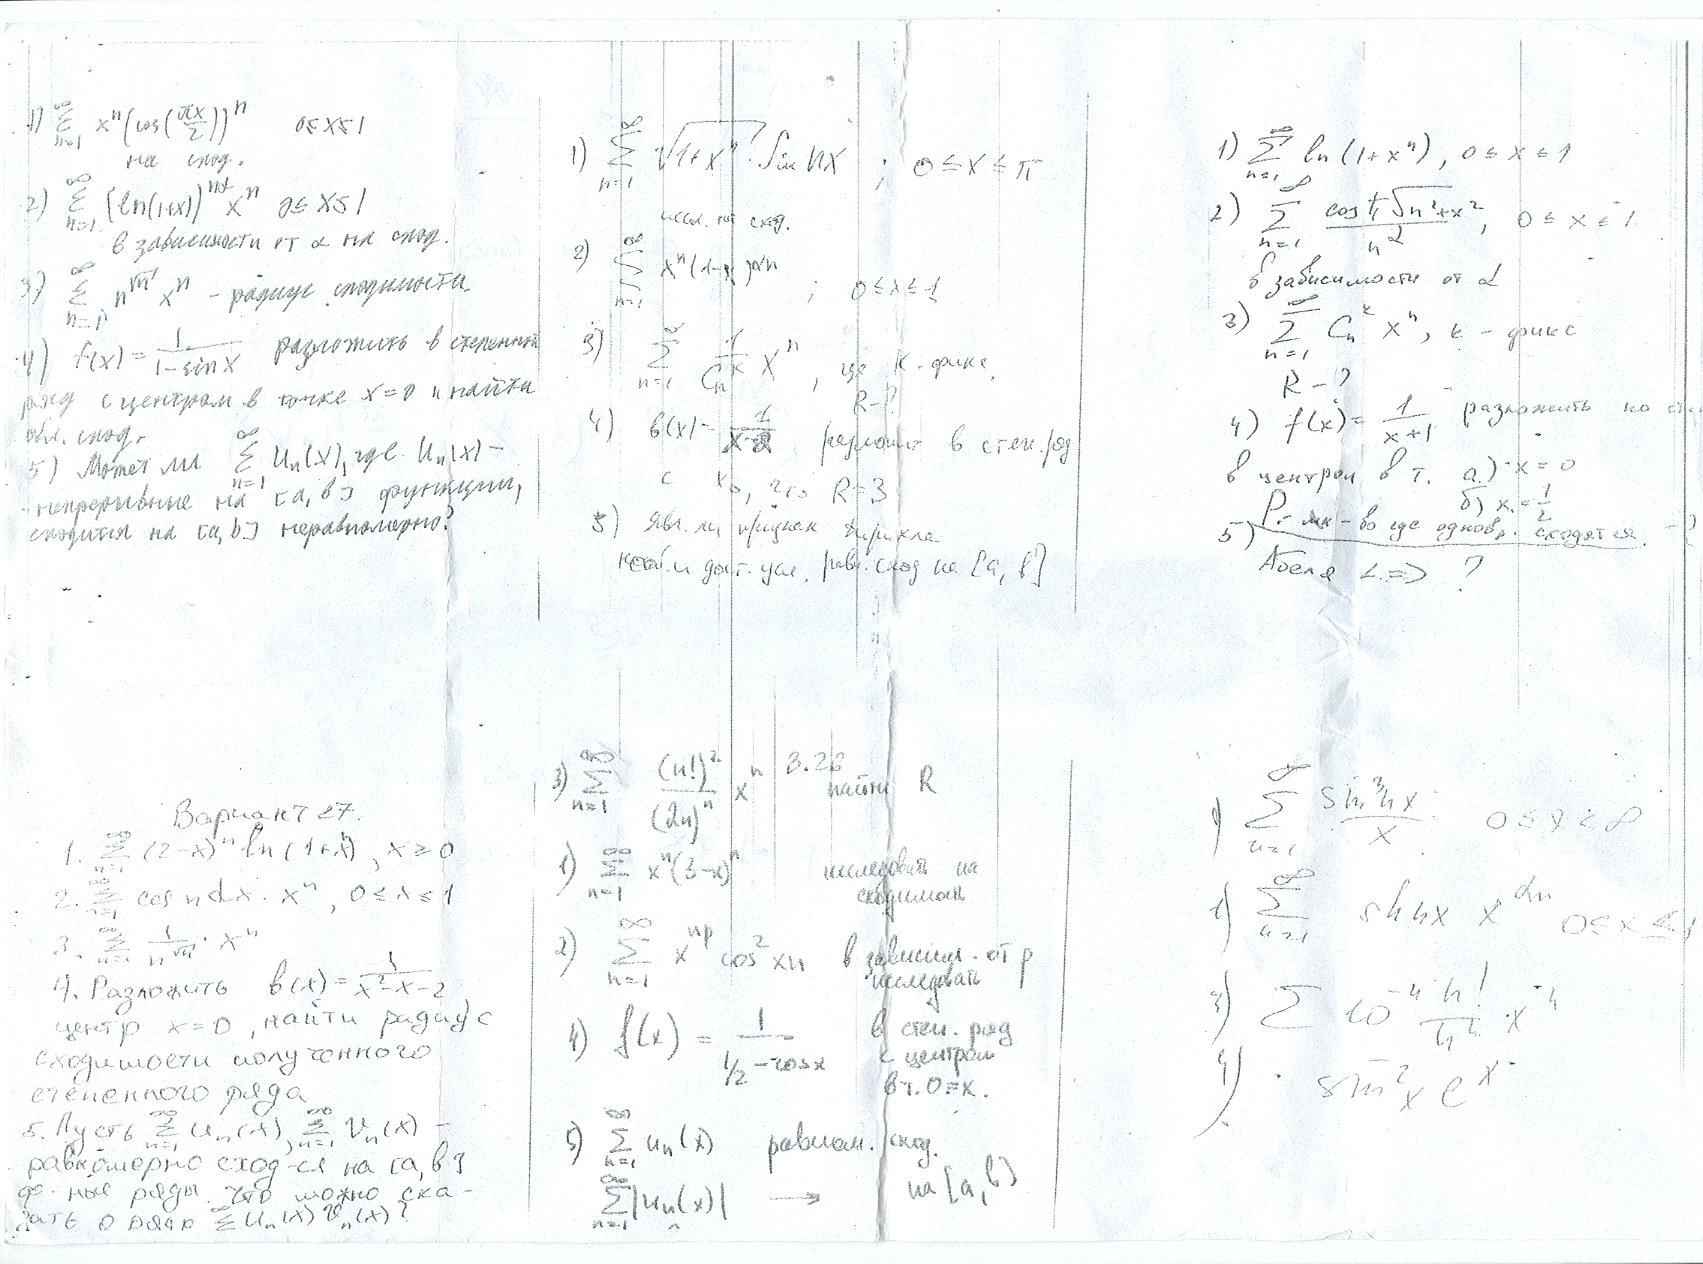 1) ∑_{n=1}^∞ x^n (cos(πx/2))^n 0≤x≤1
на сход.
2) ∑_{n=1}^∞ (ln(1+x))^{nα} x^n 0≤x≤1
в зависимости от α на сход.
3) ∑_{n=1}^∞ n^{√n} x^n - радиус сходимости.
4) f(x) = 1/(1-sinx) разложить в степенной
ряд с центром в точке x=0 и найти
обл. сход.
5) Может ли ∑_{n=1}^∞ u_n(x), где u_n(x) -
непрерывные на [a,b] функции,
сходится на [a,b] неравномерно?
1) ∑_{n=1}^∞ √(1+x^n) · sin nx ; 0≤x≤π
иссл. на сход.
2) ∑_{n=1}^∞ x^n(1-x)^{αn} ; 0≤x≤1
3) ∑_{n=1}^∞ 1/C_n^k x^n, где k-фикс.
R-?
4) f(x) = разложить в степ. ряд
с x_0, что R=3
5) Явл. ли признак Дирихле
необх и дост. усл. равн. сход на [a,b]
1) ∑_{n=1}^∞ ln(1+x^n), 0≤x≤1
2) ∑_{n=1}^∞ cos π√(n²+x²) / n^α, 0≤x≤1
в зависимости от α
3) ∑_{n=1}^∞ C_n^k x^n, k - фикс
R-?
4) f(x) = 1/(x+1) разложить по
в центрой в т. а) x=0
б) x=1/2
мн-во где одновр. сходятся - ?
5) Абеля <=> ?
Вариант 27.
1. ∑_{n=1}^∞ (2-x)^n ln(1+x^n), x≥0
2. ∑_{n=1}^∞ cos nαx · x^n, 0≤x≤1
3. ∑_{n=1}^∞ 1/n^{√n} · x^n
4. Разложить f(x) = 1/(x²-x-2)
центр x=0, найти радиус
сходимости полученного
степенного ряда
5. Пусть ∑_{n=1}^∞ u_n(x), ∑_{n=1}^∞ v_n(x) -
равномерно сход-ся на [a,b]
ф-ные ряды. Что можно ска-
зать о ряде ∑ u_n(x) v_n(x)?
3) ∑_{n=1}^∞ (n!)²/(2n)^n x^n 3.26 найти R
1) ∑_{n=1}^∞ x^n(3-x)^n исследовать на
сходимость
2) ∑_{n=1}^∞ x^{np} cos² xn в зависим. от p
исследовать
4) f(x) = 1/(1/2 - cosx) в степ. ряд
с центром
в т. 0=x.
5) ∑_{n=1}^∞ u_n(x) равном. сход.
∑_{n=1}^∞ |u_n(x)| → на [a,b]
1) ∑_{n=1}^∞ sin³nx / x 0≤x<∞
2) ∑_{n=1}^∞ sin nx x^{αn} 0≤x≤1
3) ∑ 10^{-n} n!/n^n · x^{-n}
4) sin²x e^x